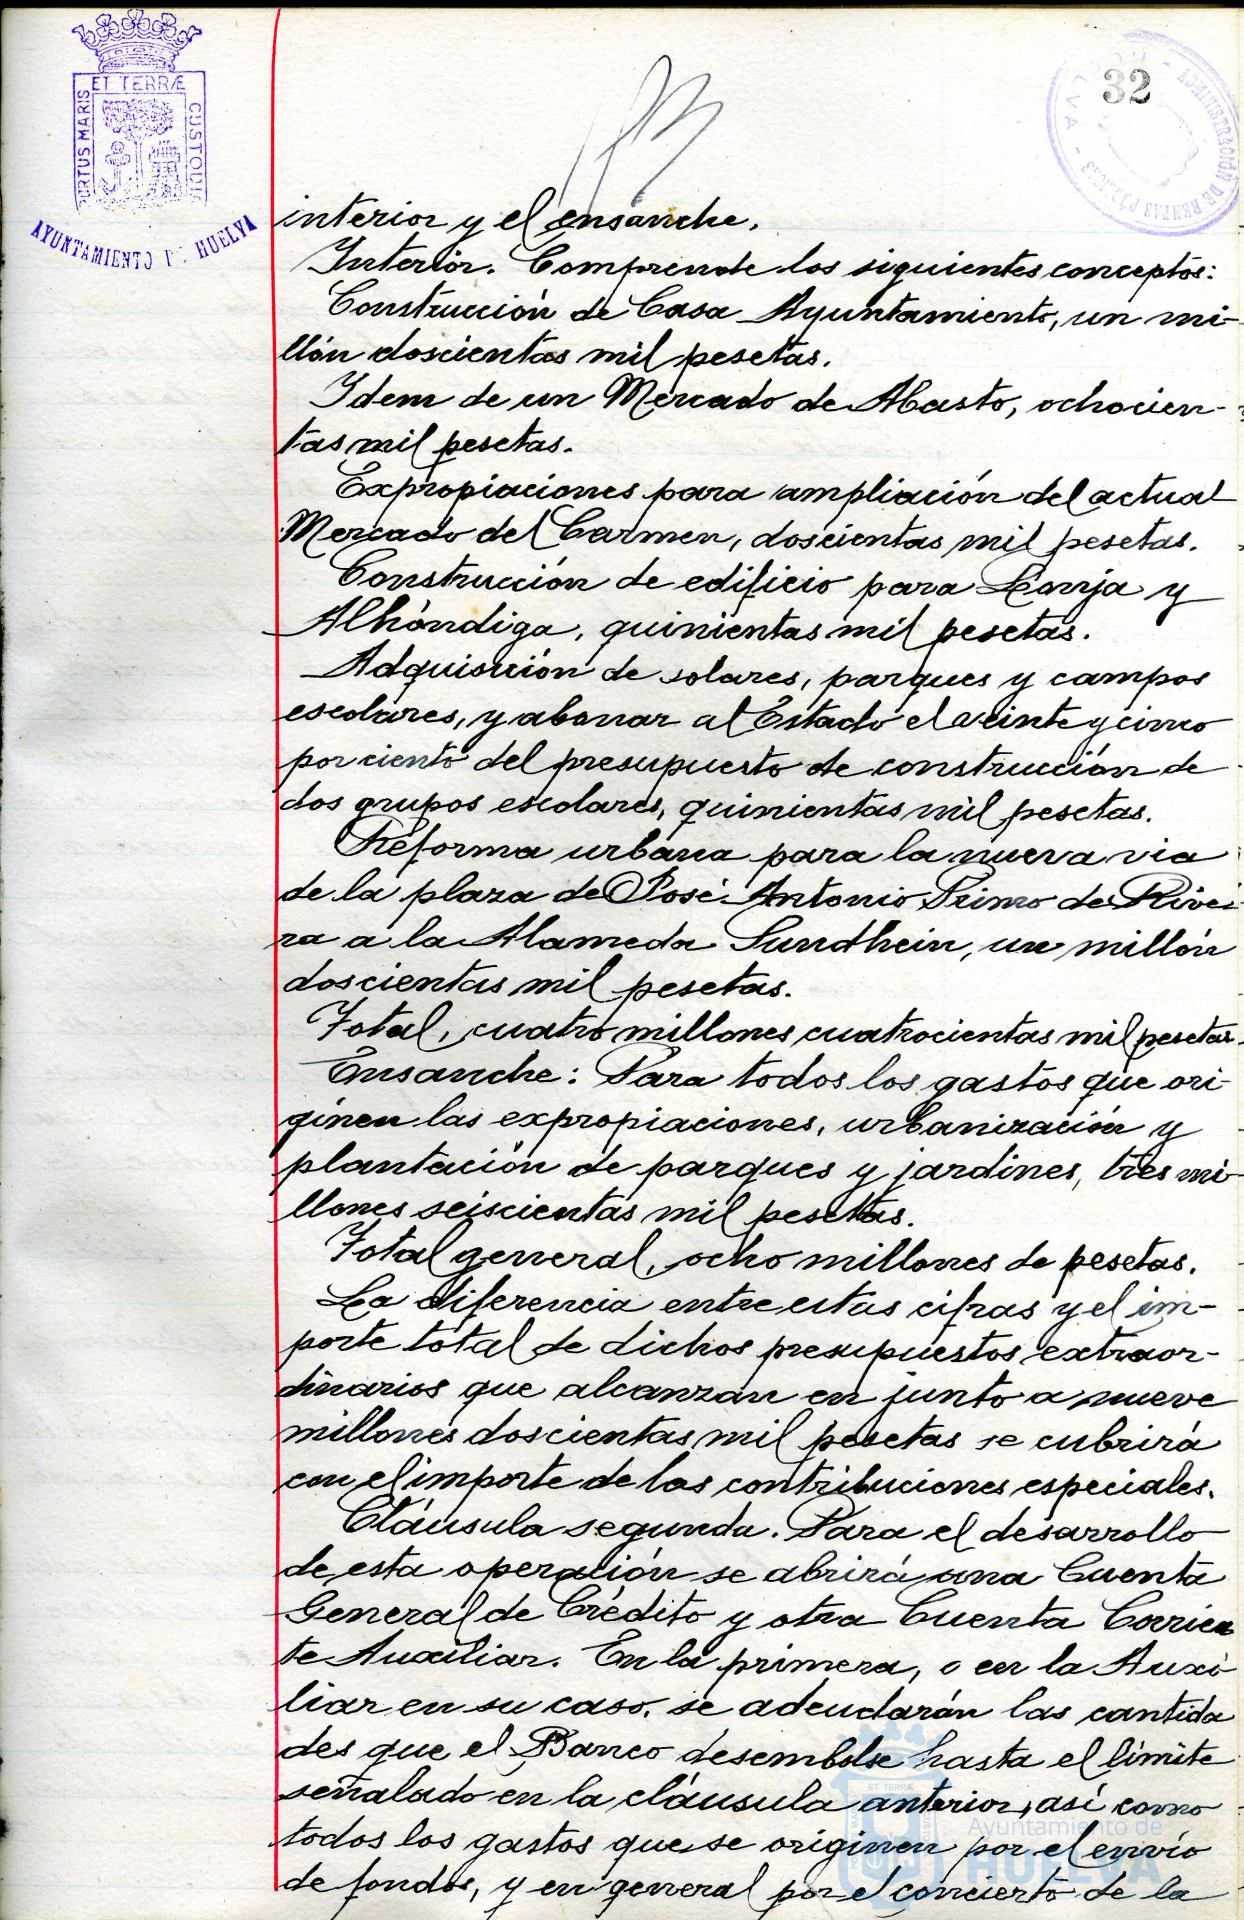 PORTUS MARIS ET TERRÆ CUSTODIA
AYUNTAMIENTO DE HUELVA
32
ADMINISTRACIÓN DE RENTAS PÚBLICAS - HUELVA -
interior y el ensanche.
Interior. Comprende los siguientes conceptos:
Construcción de Casa Ayuntamiento, un mi-
llón doscientas mil pesetas.
Idem de un Mercado de Abasto, ochocien-
tas mil pesetas.
Expropiaciones para ampliación del actual
Mercado del Carmen, doscientas mil pesetas.
Construcción de edificio para Lonja y
Alhóndiga, quinientas mil pesetas.
Adquisición de solares, parques y campos
escolares, y abonar al Estado el veinte y cinco
por ciento del presupuesto de construcción de
dos grupos escolares, quinientas mil pesetas.
Reforma urbana para la nueva via
de la plaza de José Antonio Primo de Rive-
ra a la Alameda Sundhein, un millón
doscientas mil pesetas.
Total, cuatro millones cuatrocientas mil pesetas.
Ensanche: Para todos los gastos que ori-
ginen las expropiaciones, urbanización y
plantación de parques y jardines, tres mi-
llones seiscientas mil pesetas.
Total general, ocho millones de pesetas.
La diferencia entre estas cifras y el im-
porte total de dichos presupuestos extraor-
dinarios que alcanzan en junto a nueve
millones doscientas mil pesetas se cubrirá
con el importe de las contribuciones especiales.
Cláusula segunda. Para el desarrollo
de esta operación se abrirá una Cuenta
General de Crédito y otra Cuenta Corrien
te Auxiliar. En la primera, o en la Auxi
liar en su caso, se adeudarán las cantida
des que el Banco desembolse hasta el límite
señalado en la cláusula anterior, así como
todos los gastos que se originen por el envío
de fondos, y en general por el concierto de la
ET TERRÆ
Ayuntamiento de
HUELVA